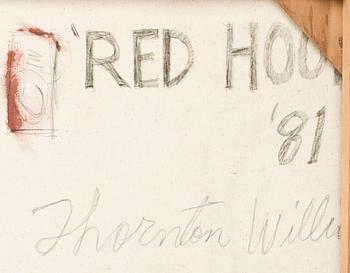 'RED HOO
'81
Thornton Willi